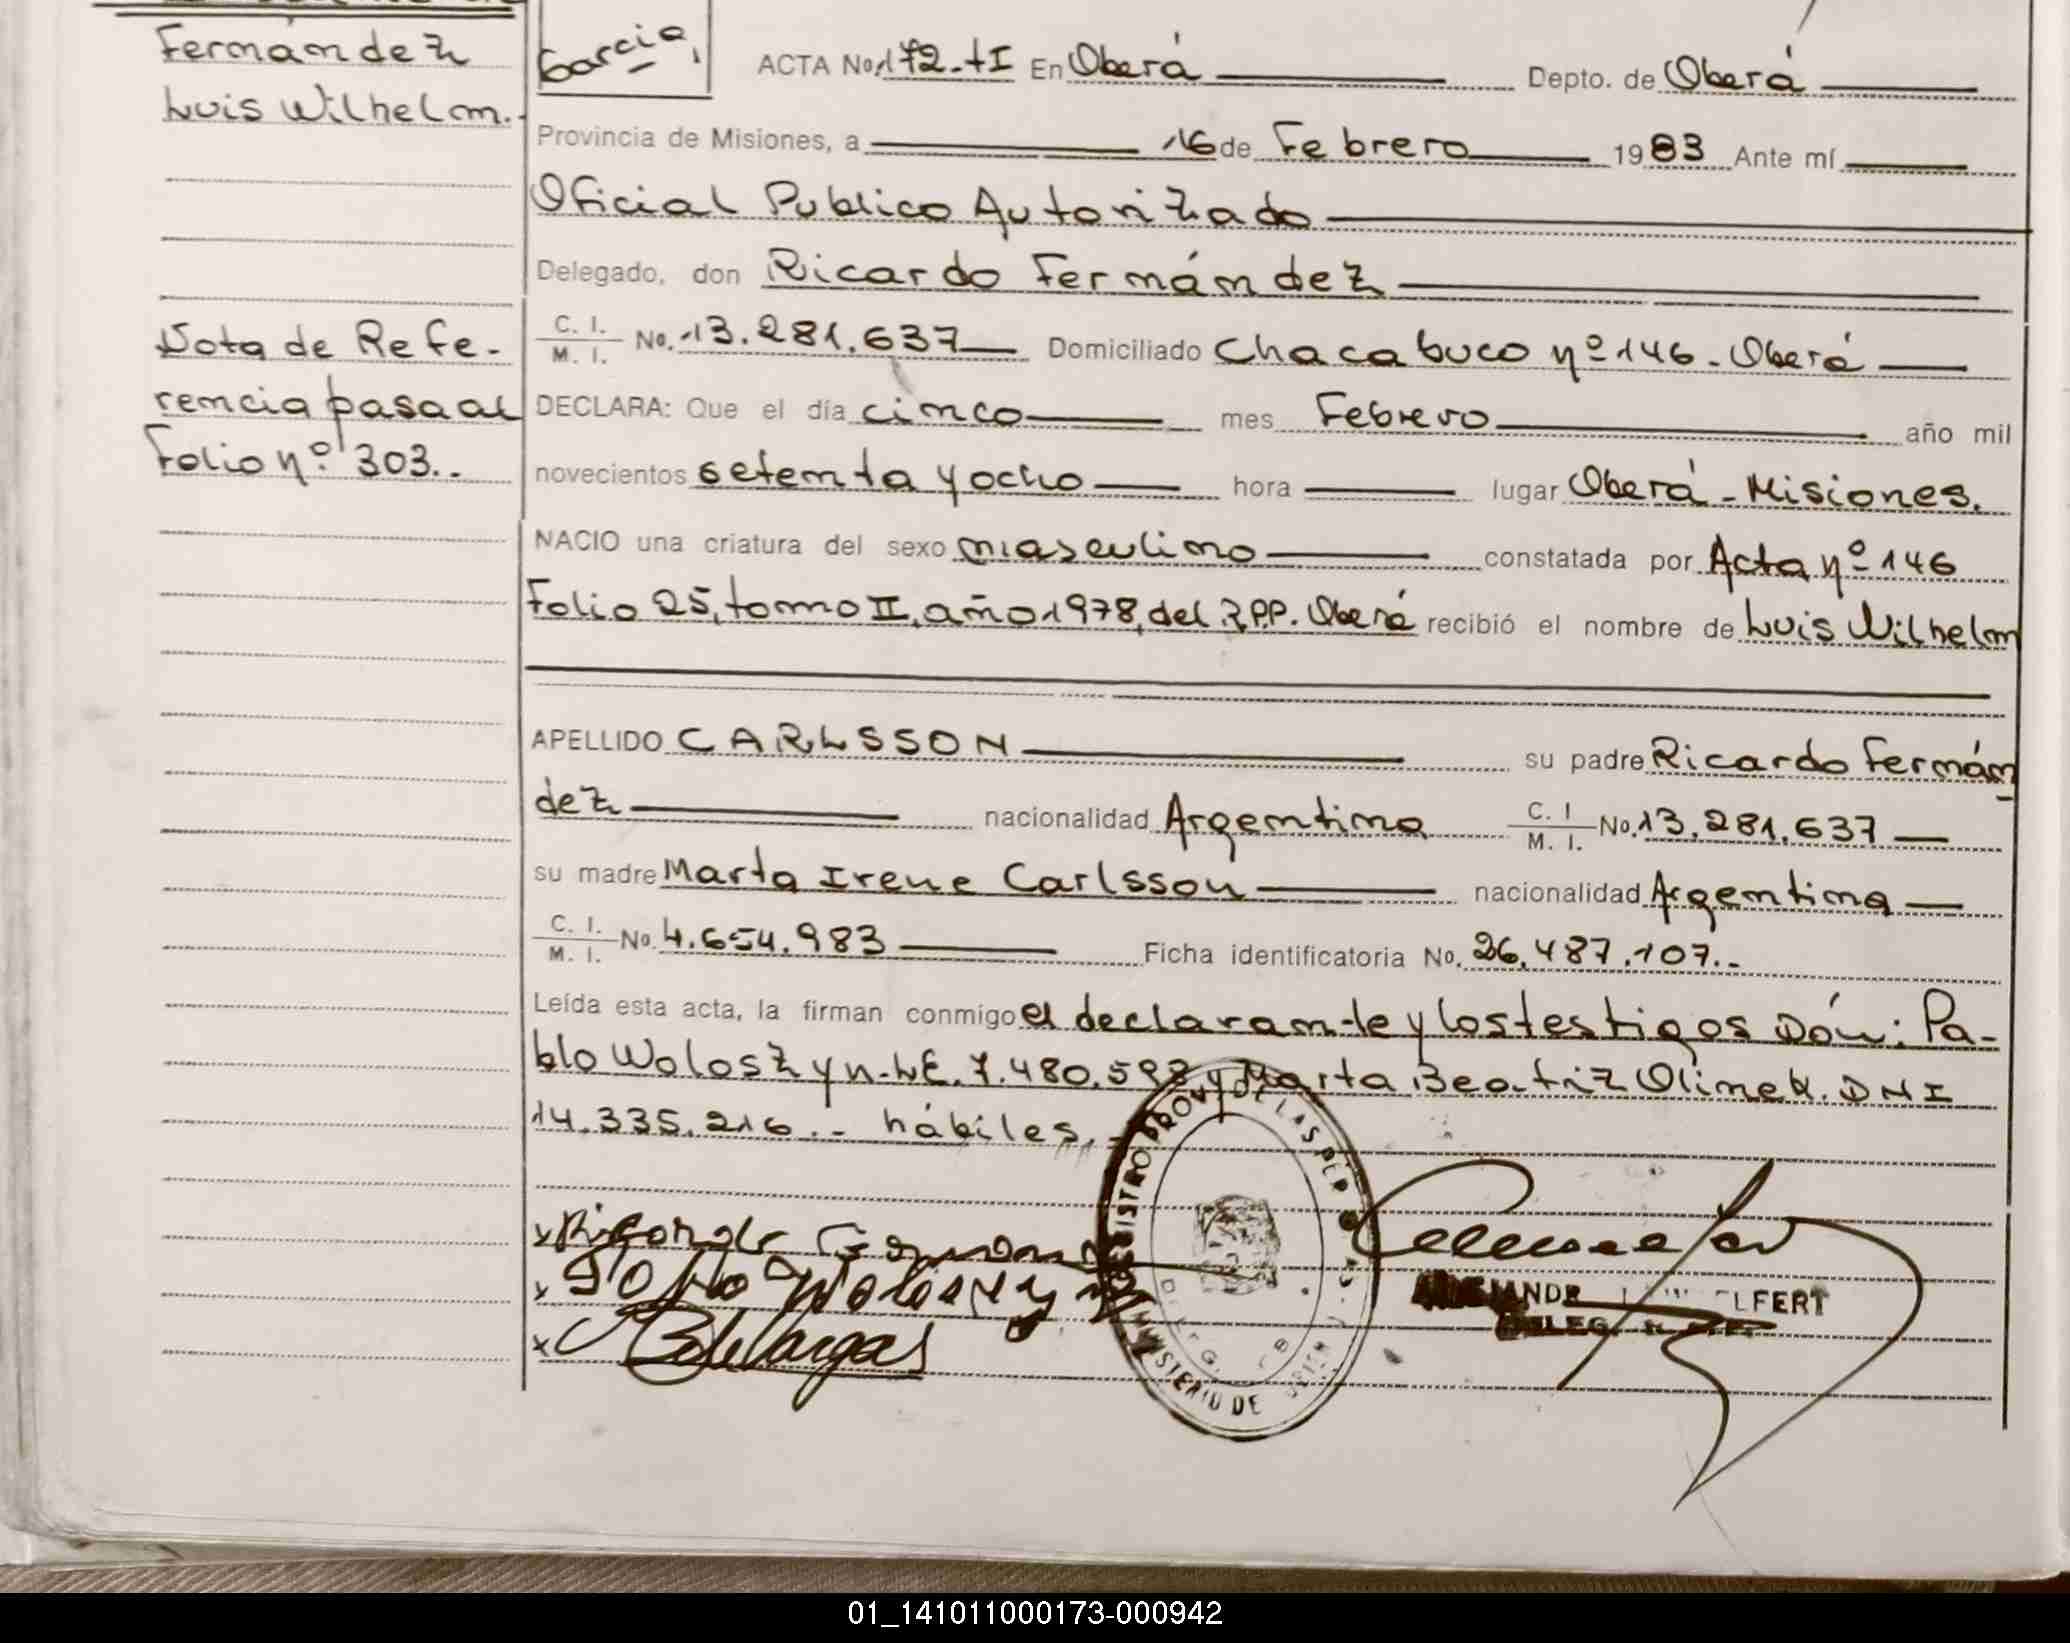 Fernández
Luis Wilhelm.
García,
ACTA No. 172-tI En Oberá Depto. de Oberá
Provincia de Misiones, a 16 de Febrero 1983 Ante mí
Oficial Publico Autorizado
Delegado, don Ricardo Fernández
C. I.
M. I. No. 13.281.637 Domiciliado Chacabuco nº 146. Oberá
Nota de Refe-
rencia pasa al
Folio nº 303..
DECLARA: Que el día cinco mes Febrero año mil
novecientos setenta y ocho hora lugar Oberá - Misiones.
NACIO una criatura del sexo masculino constatada por Acta nº 146
Folio 25, tomo II, año 1978, del R.P.P. Oberá recibió el nombre de Luis Wilhelm
APELLIDO CARLSSON su padre Ricardo Fernán
dez nacionalidad Argentina C. I
M. I. No. 13.281.637
su madre Marta Irene Carlsson nacionalidad Argentina
C. I.
M. I. No. 4.654.983 Ficha identificatoria No. 26.487.107.-
Leída esta acta, la firman conmigo el declarante y los testigos Dón: Pa-
blo Woloszyn-LE. 7.480.598 y Marta Beatriz Olimek. DNI
14.335.216.- hábiles.-
REGISTRO PROV. DE LAS PER
MINISTERIO DE
LFERT
01_141011000173-000942